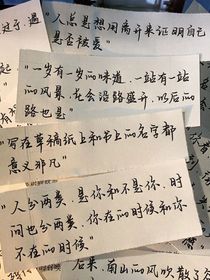 "人总是想用离开来证明自己
是否被爱"
"一岁有一岁的味道,一站有一站
的风景,花会沿路盛开,以后的
路也是"
"写在草稿纸上和书上的名字都
意义非凡"
"人分两类,是你和不是你,时
间也分两类,你在的时候和你
不在的时候"
后来,南山的风吹散了